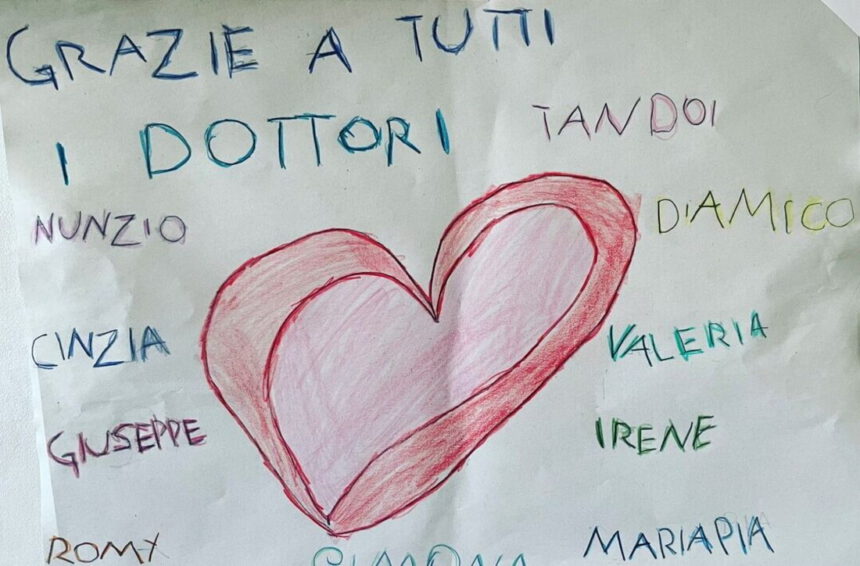 GRAZIE A TUTTI
I DOTTORI
TANDOI
NUNZIO
D'AMICO
CINZIA
VALERIA
GIUSEPPE
IRENE
ROMY
SIMONA
MARIAPIA